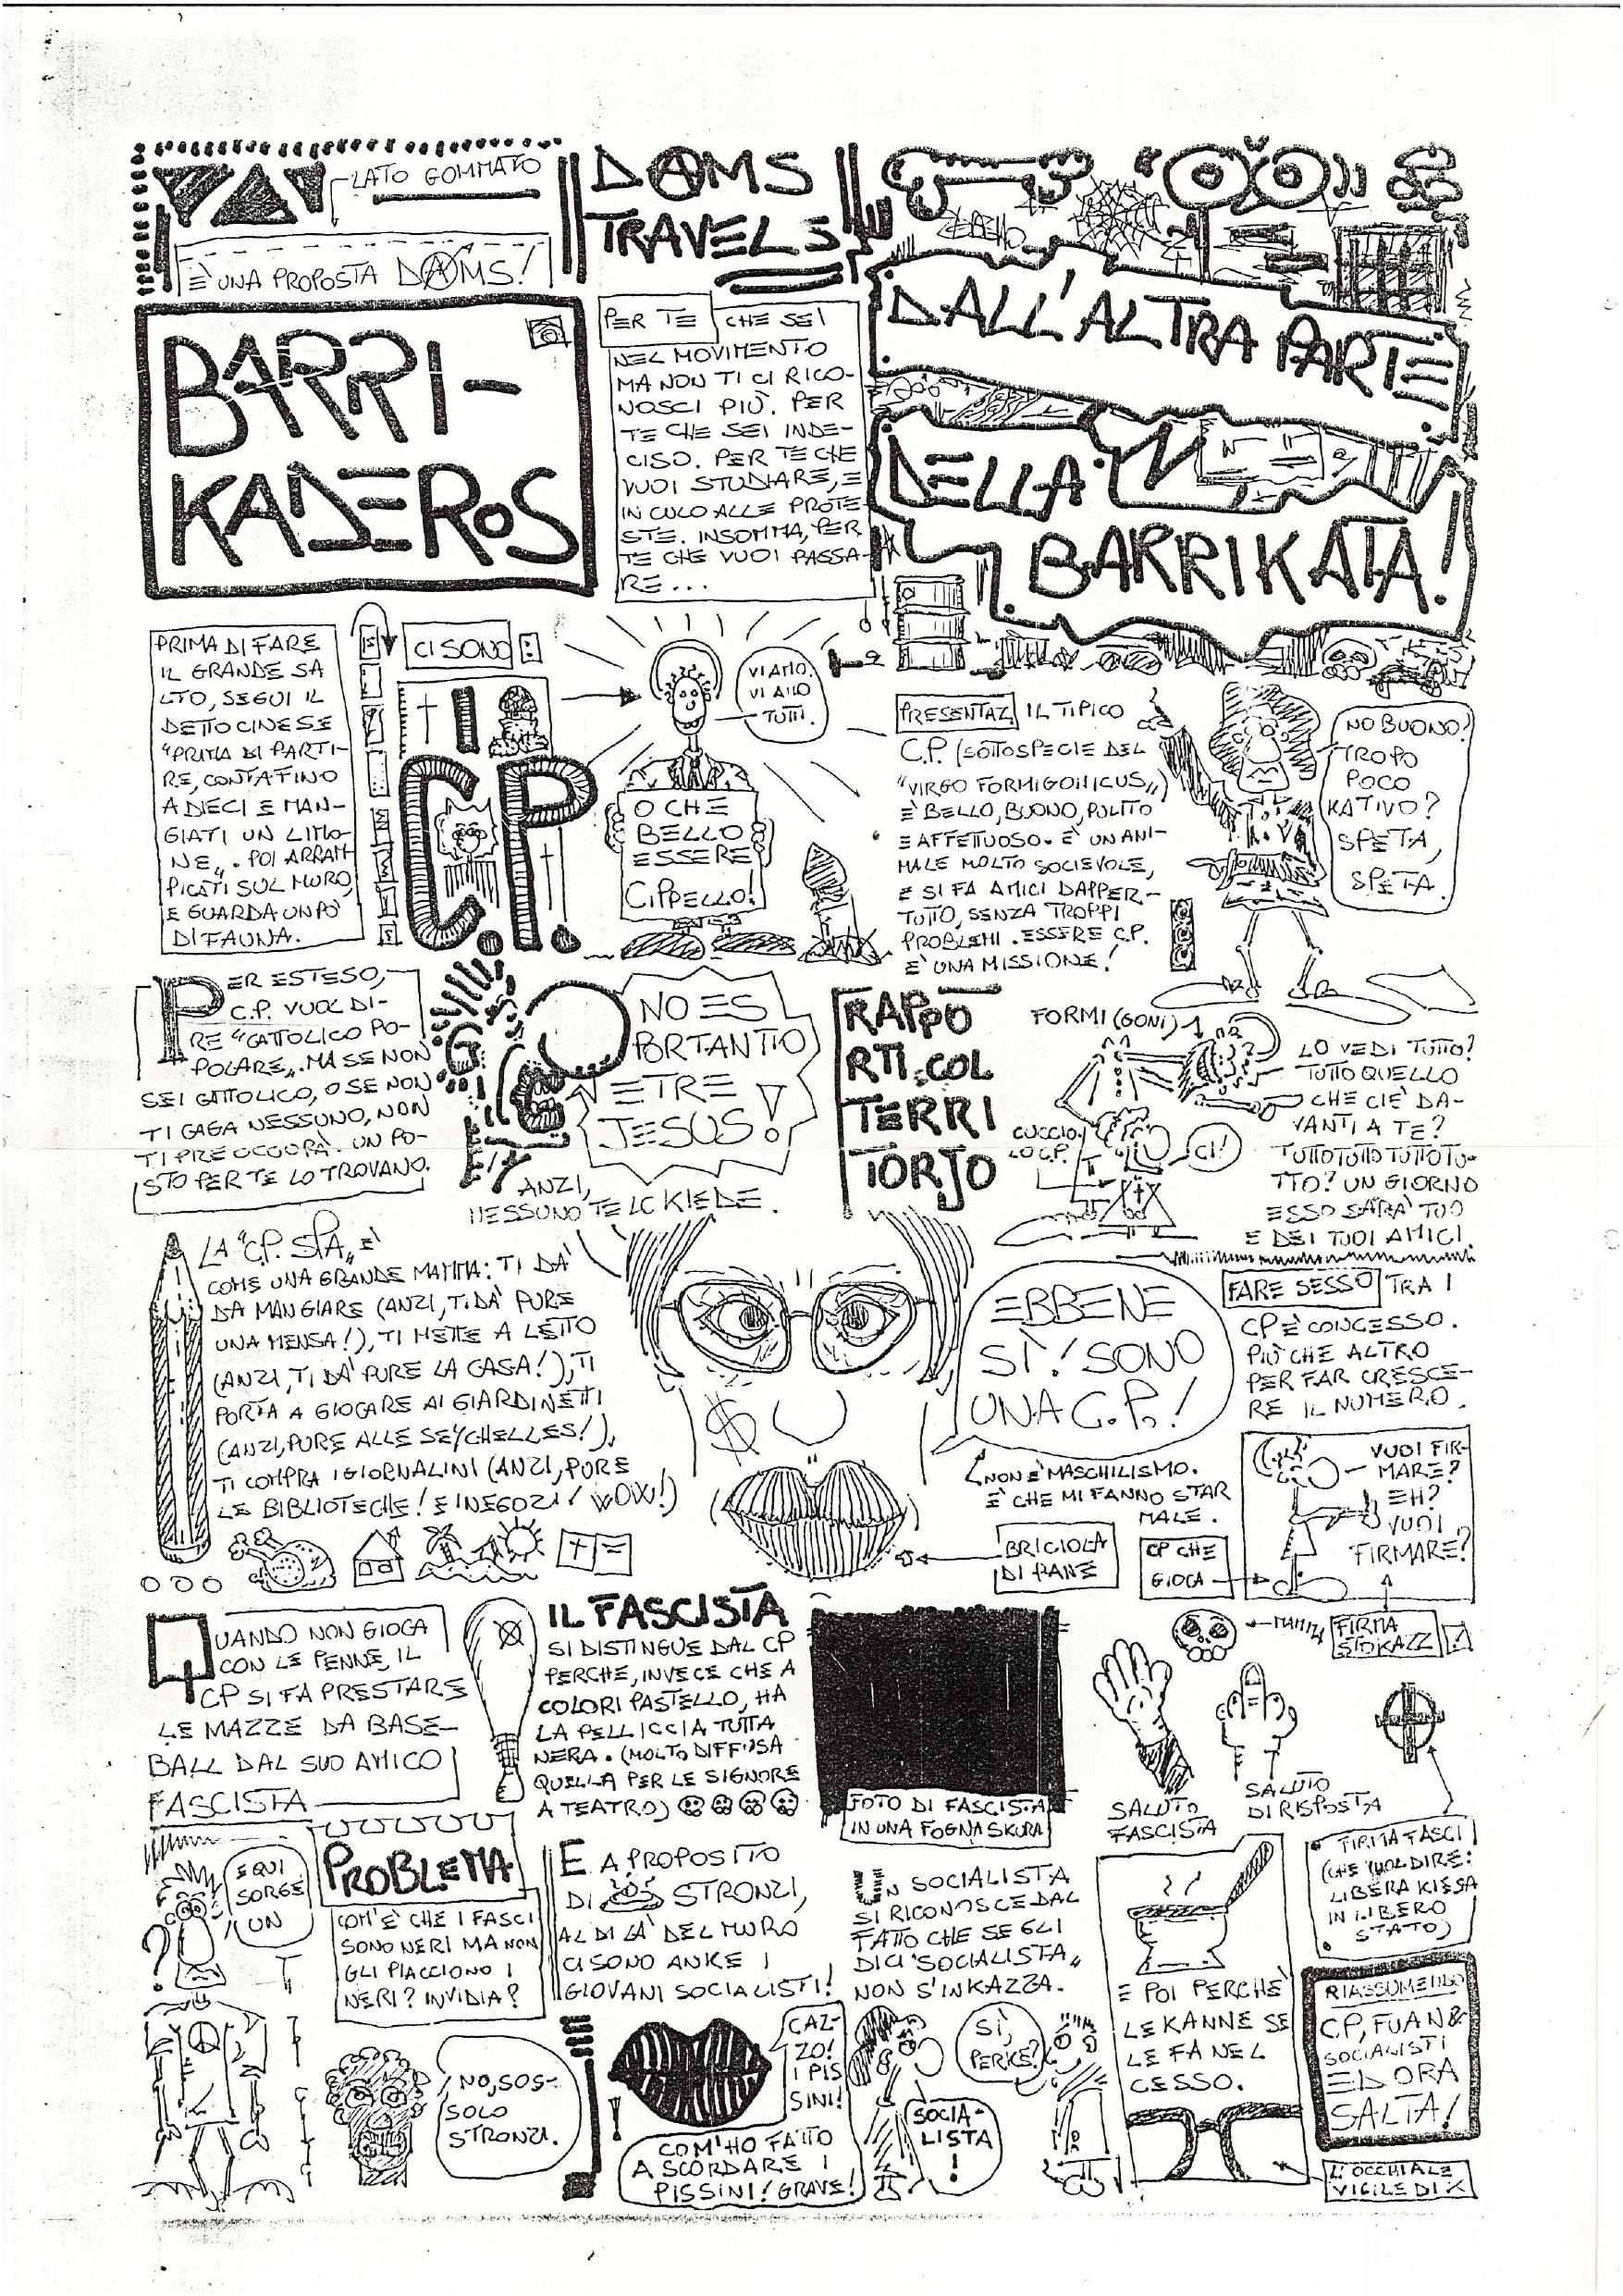 LATO GOMMATO
È UNA PROPOSTA DAMS!
DAMS
TRAVELS
BARRI-
KADEROS
PER TE CHE SEI
NEL MOVIMENTO
MA NON TI CI RICO-
NOSCI PIÙ. PER
TE CHE SEI INDE-
CISO. PER TE CHE
VUOI STUDIARE, E
IN CULO ALLE PROTE-
STE. INSOMMA, PER
TE CHE VUOI PASSA-
RE...
DALL'ALTRA PARTE
DELLA
BARRIKATA!
PRIMA DI FARE
IL GRANDE SA
LTO, SEGUI IL
DETTO CINESE
"PRIMA DI PARTI-
RE, CONTA FINO
A DIECI E MAN-
GIATI UN LIMO-
NE". POI ARRAM-
PICATI SUL MURO,
E GUARDA UN PO'
DI FAUNA.
CI SONO:
I
C.P.
VI AMO.
VI AMO
TUTTI.
O CHE
BELLO
ESSERE
CIPPELLO!
PRESENTAZ. IL TIPICO
C.P. (SOTTOSPECIE DEL
"VIRGO FORMIGONICUS")
È BELLO, BUONO, PULITO
E AFFETTUOSO. E' UN ANI-
MALE MOLTO SOCIEVOLE,
E SI FA AMICI DAPPER-
TUTTO, SENZA TROPPI
PROBLEMI. ESSERE C.P.
E' UNA MISSIONE!
NO BUONO?
TROPO
POCO
KATIVO?
SPETA,
SPETA.
PER ESTESO,
C.P. VUOL DI-
RE "CATTOLICO PO-
POLARE". MA SE NON
SEI CATTOLICO, O SE NON
TI CAGA NESSUNO, NON
TI PREOCCUPÀ. UN PO-
STO PER TE LO TROVANO.
NO ES
PORTANTIO
ETRE
JESUS!
ANZI,
NESSUNO TE LO KIEDE.
RAPPO
RTI COL
TERRI
TORJO
FORMI(GONI)
CUCCIO-
LO C.P.
CI!
LO VEDI TUTTO?
TUTTO QUELLO
CHE CIE' DA-
VANTI A TE?
TUTTOTUTTOTUTTOTU-
TTO? UN GIORNO
ESSO SARA' TUO
E DEI TUOI AMICI.
LA "C.P. SPA" E'
COME UNA GRANDE MAMMA: TI DA'
DA MANGIARE (ANZI, TI DA' PURE
UNA MENSA!), TI METTE A LETTO
(ANZI, TI DA' PURE LA CASA!), TI
PORTA A GIOCARE AI GIARDINETTI
(ANZI, PURE ALLE SEYCHELLES!),
TI COMPRA I GIORNALINI (ANZI, PURE
LE BIBLIOTECHE! E I NEGOZI! WOW!)
EBBENE
SÌ! SONO
UNA C.P.!
NON E' MASCHILISMO.
E' CHE MI FANNO STAR
MALE.
BRICIOLA
DI PANE
FARE SESSO TRA I
CP È CONCESSO.
PIÙ CHE ALTRO
PER FAR CRESCE-
RE IL NUMERO.
VUOI FIR-
MARE?
EH?
VUOI
FIRMARE?
CP CHE
GIOCA
FIRMA
STOKAZZ
!
QUANDO NON GIOCA
CON LE PENNE, IL
CP SI FA PRESTARE
LE MAZZE DA BASE-
BALL DAL SUO AMICO
FASCISTA
IL FASCISTA
SI DISTINGUE DAL CP
PERCHE, INVECE CHE A
COLORI PASTELLO, HA
LA PELLICCIA TUTTA
NERA. (MOLTO DIFFUSA
QUELLA PER LE SIGNORE
A TEATRO)
FOTO DI FASCISTA
IN UNA FOGNA SKURA
SALUTO
FASCISTA
SALUTO
DI RISPOSTA
FIRMA FASCI
(CHE VUOL DIRE:
LIBERA KIESA
IN LIBERO
STATO)
E QUI
SORGE
UN
PROBLEMA
COM'È CHE I FASCI
SONO NERI MA NON
GLI PIACCIONO I
NERI? INVIDIA?
NO, SOS-
SOLO
STRONZI.
E A PROPOSITO
DI STRONZI,
AL DI LA' DEL MURO
CI SONO ANKE I
GIOVANI SOCIALISTI!
UN SOCIALISTA
SI RICONOSCE DAL
FATTO CHE SE GLI
DICI "SOCIALISTA"
NON S'INKAZZA.
CAZ-
ZO!
I PIS
SINI!
COM'HO FATTO
A SCORDARE I
PISSINI! GRAVE!
SÌ,
PERKÈ?
SOCIA-
LISTA
!
E POI PERCHE'
LE KANNE SE
LE FA NEL
CESSO.
RIASSUMENDO
CP, FUAN &
SOCIALISTI
ED ORA
SALTA!
L'OCCHIALE
VIGILE DI X